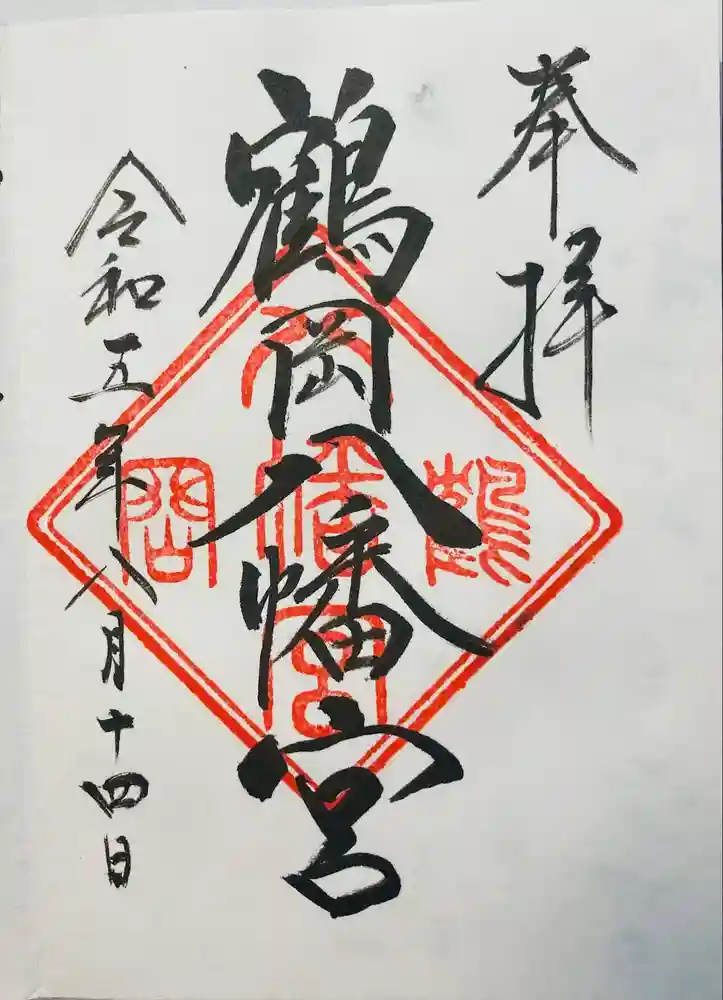 奉拝
鶴岡八幡宮
令和五年八月十四日
鶴
八
幡
宮
岡